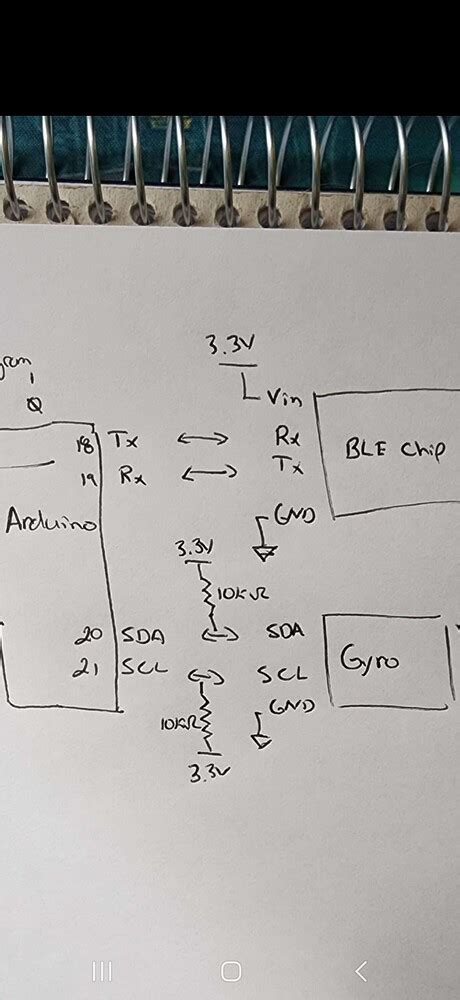 3.3V
Vin
18 Tx Rx
BLE Chip
19 Rx Tx
Arduino
GND
3.3V
10kΩ
20 SDA SDA
21 SCL SCL
Gyro
GND
10kΩ
3.3V